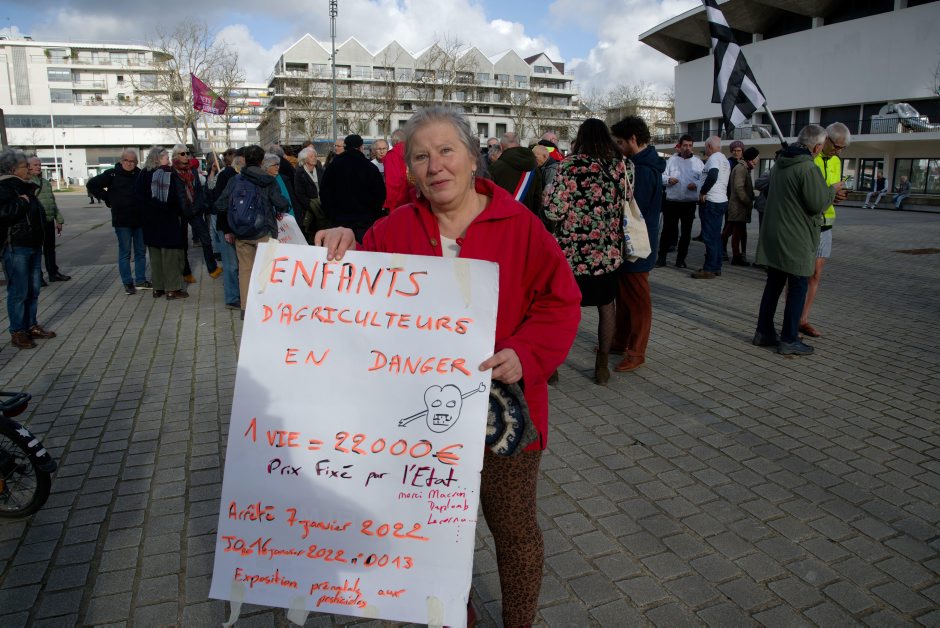 ENFANTS
D'AGRICULTEURS
EN DANGER
1 VIE = 22000€
Prix Fixé par l'Etat...
merci Macron
Duplomb
Lecornu...
Arrêté 7 janvier 2022
JORF 16 janvier 2022 n°0013
Exposition prénatals aux
pesticides